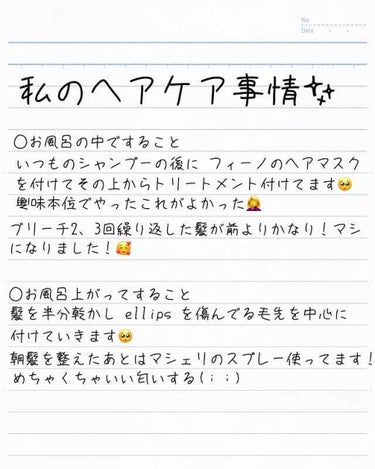 No.
Date
私のヘアケア事情
〇お風呂の中ですること
いつものシャンプーの後に フィーノのヘアマスク
を付けてその上からトリートメント付けてます🥺
興味本位でやったこれがよかった🤦‍♀️
ブリーチ2、3回繰り返した髪が前よりかなり！マシ
になりました！🥰
〇お風呂上がってすること
髪を半分乾かし ellips を傷んでる毛先を中心に
付けていきます🥺
朝髪を整えたあとはマシェリのスプレー使ってます！
めちゃくちゃいい匂いする(；；)